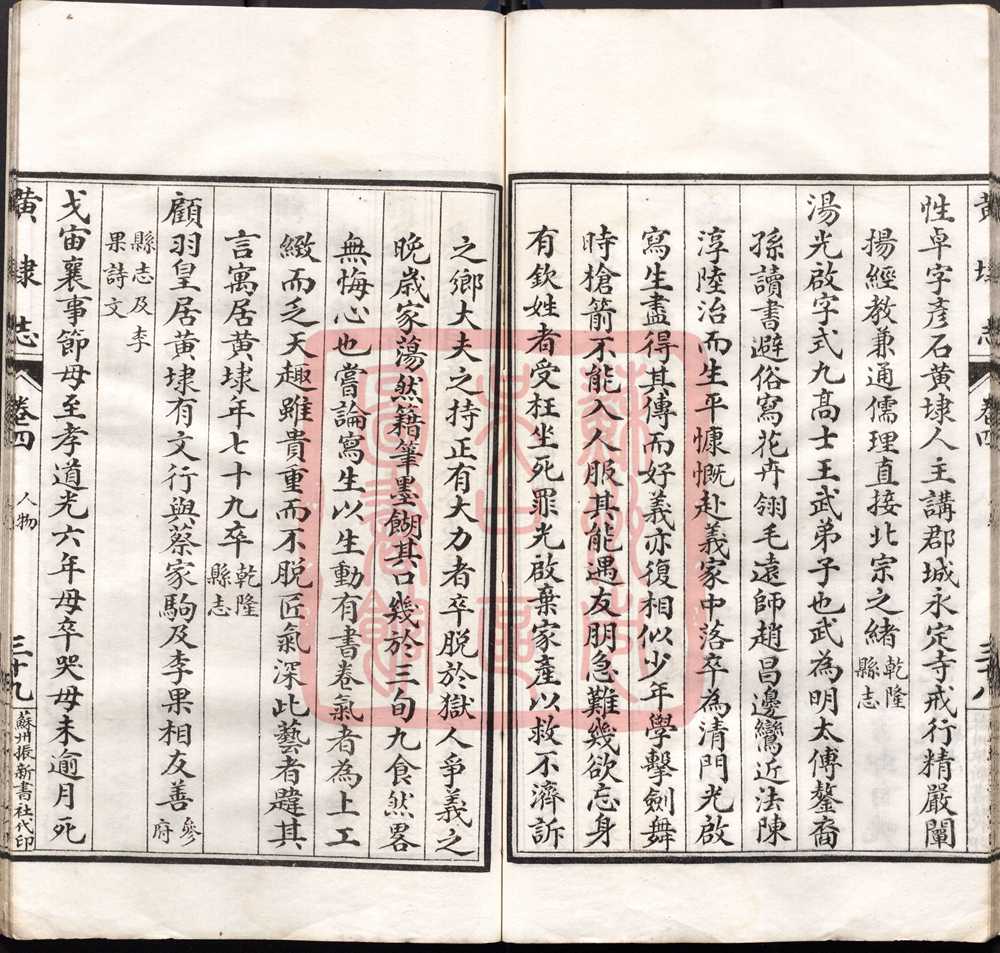 黃埭志
卷四
三十八
性卓字彥石黃埭人主講郡城永定寺戒行精嚴闡
揚經教兼通儒理直接北宗之緒乾隆
縣志
湯光啟字式九高士王武弟子也武為明太傅鏊裔
孫讀書避俗寫花卉翎毛遠師趙昌邊鸞近法陳
淳陸治而生平慷慨赴義家中落卒為清門光啟
寫生盡得其傳而好義亦復相似少年學擊劍舞
時槍箭不能入人服其能遇友朋急難幾欲忘身
有欽姓者受枉坐死罪光啟棄家產以救不濟訴
之鄉大夫之持正有大力者卒脫於獄人爭義之
晚歲家蕩然籍筆墨餬其口幾於三旬九食然畧
無悔心也嘗論寫生以生動有書卷氣者為上工
緻而乏天趣雖貴重而不脫匠氣深此藝者韙其
言寓居黃埭年七十九卒乾隆
縣志
顧羽皇居黃埭有文行與蔡家駒及李果相友善參
府
縣志及李
果詩文
戈宙襄事節母至孝道光六年母卒哭母未逾月死
黃埭志
卷四
人物
三十九
蘇州振新書社代印